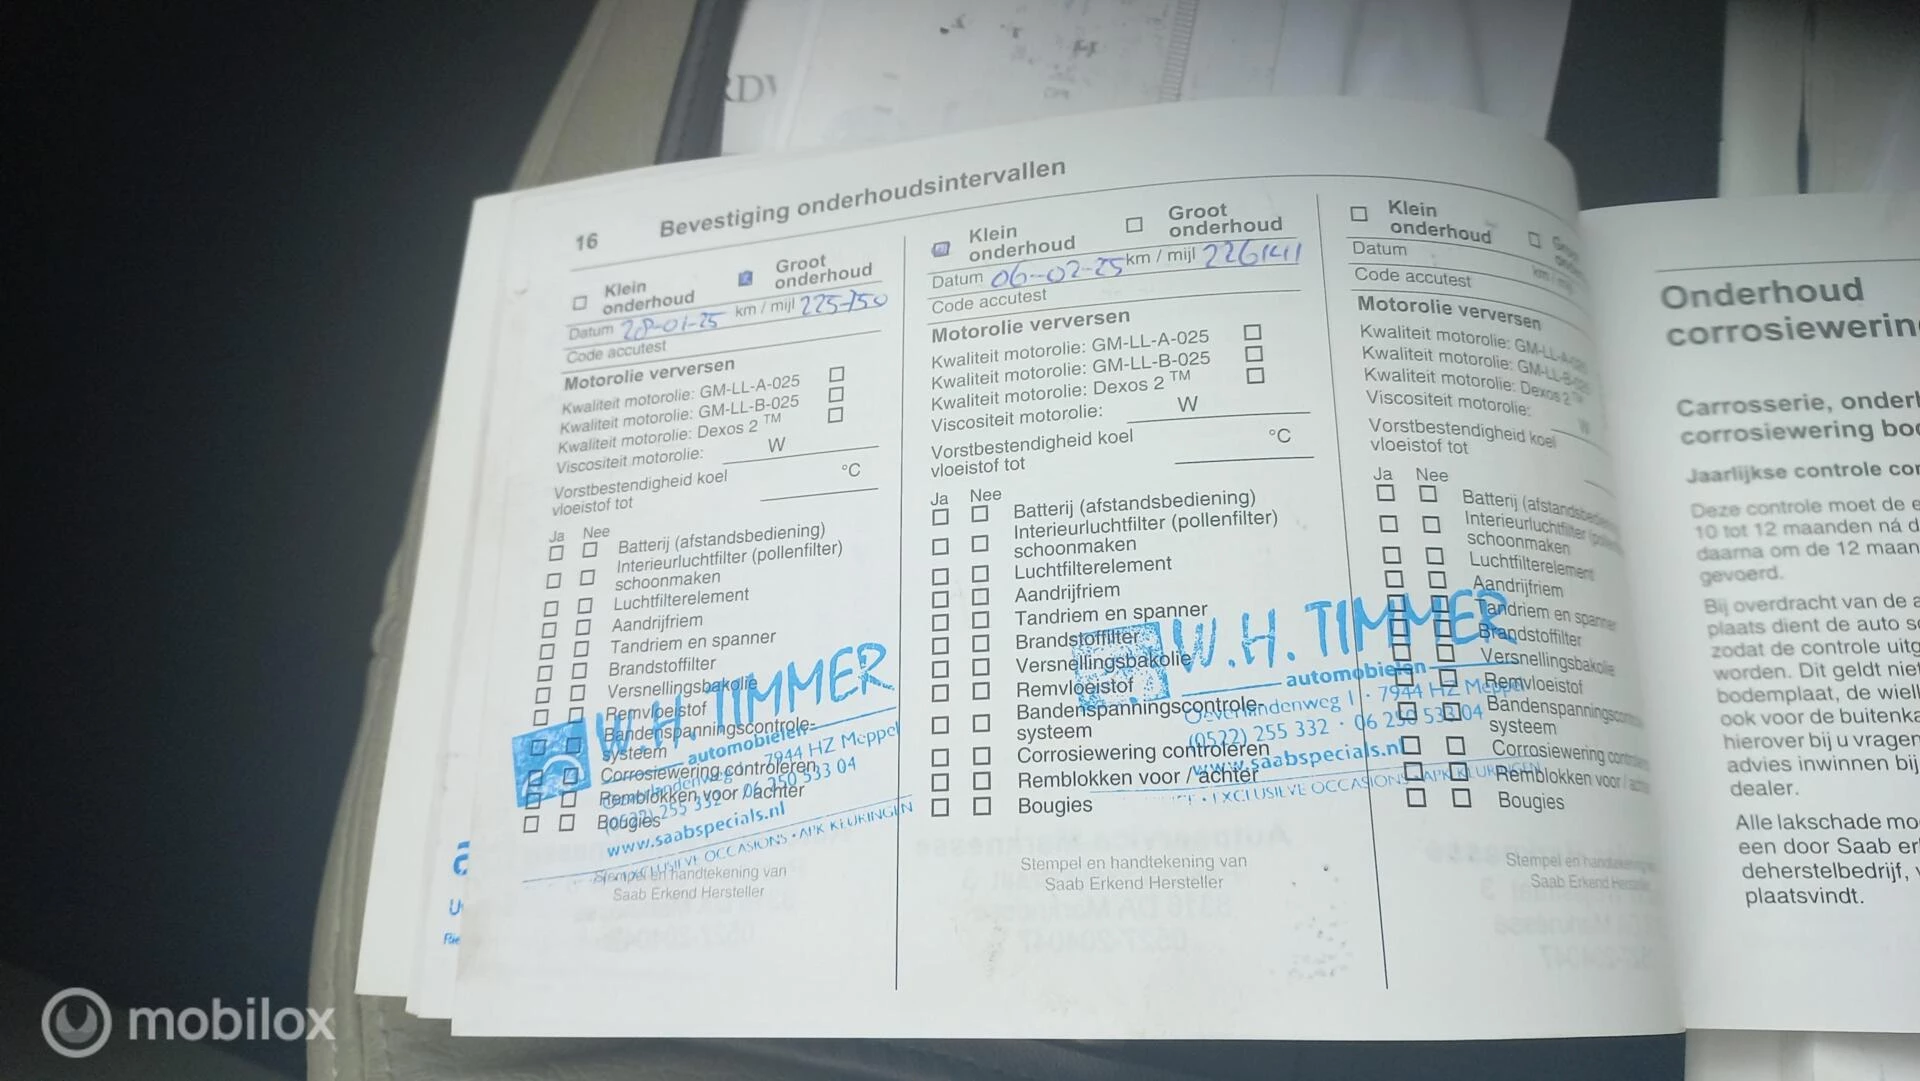 16 Bevestiging onderhoudsintervallen
Klein
onderhoud
Groot
onderhoud
Datum 28-01-25 km / mijl 225-750
Code accutest
Motorolie verversen
Kwaliteit motorolie: GM-LL-A-025
Kwaliteit motorolie: GM-LL-B-025
Kwaliteit motorolie: Dexos 2 TM
Viscositeit motorolie: W
Vorstbestendigheid koel
vloeistof tot °C
Ja Nee
Batterij (afstandsbediening)
Interieurluchtfilter (pollenfilter)
schoonmaken
Luchtfilterelement
Aandrijfriem
Tandriem en spanner
Brandstoffilter
Versnellingsbakolie
Remvloeistof
Bandenspanningscontrole-
systeem
Corrosiewering controleren
Remblokken voor / achter
Bougies
W.H. TIMMER
automobielen
7944 HZ Meppel
(0522) 255 332 · 06 250 533 04
www.saabspecials.nl
EXCLUSIEVE OCCASIONS · APK KEURINGEN
Stempel en handtekening van
Saab Erkend Hersteller
Klein
onderhoud
Groot
onderhoud
Datum 06-02-25 km / mijl
Code accutest
Motorolie verversen
Kwaliteit motorolie: GM-LL-A-025
Kwaliteit motorolie: GM-LL-B-025
Kwaliteit motorolie: Dexos 2 TM
Viscositeit motorolie: W
Vorstbestendigheid koel
vloeistof tot °C
Ja Nee
Batterij (afstandsbediening)
Interieurluchtfilter (pollenfilter)
schoonmaken
Luchtfilterelement
Aandrijfriem
Tandriem en spanner
Brandstoffilter
Versnellingsbakolie
Remvloeistof
Bandenspanningscontrole-
systeem
Corrosiewering controleren
Remblokken voor / achter
Bougies
W.H. TIMMER
automobielen
Oeverlandenweg 1 · 7944 HZ Meppel
(0522) 255 332 · 06 250 533 04
www.saabspecials.nl
EXCLUSIEVE OCCASIONS · APK KEURINGEN
Stempel en handtekening van
Saab Erkend Hersteller
Klein
onderhoud
Datum
Code accutest
Motorolie verversen
Kwaliteit motorolie: GM-LL-A-025
Kwaliteit motorolie: GM-LL-B-025
Kwaliteit motorolie: Dexos 2 TM
Viscositeit motorolie: W
Vorstbestendigheid koel
vloeistof tot
Ja Nee
Batterij (afstandsbediening
Interieurluchtfilter
schoonmaken
Luchtfilterelement
Aandrijfriem
Tandriem en spanner
Brandstoffilter
Versnellingsbakolie
Remvloeistof
Bandenspanningscontrole
systeem
Corrosiewering
Remblokken voor /
Bougies
Stempel en
Saab Erkend
Onderhoud
corrosiewering
Carrosserie, onder
corrosiewering
Jaarlijkse controle
Deze controle moet de
10 tot 12 maanden ná d
daarna om de 12 maan
gevoerd.
Bij overdracht van de a
plaats dient de auto
zodat de controle uitg
worden. Dit geldt niet
bodemplaat, de wiel
ook voor de buitenka
hierover bij u vragen
advies inwinnen bij
dealer.
Alle lakschade mo
een door Saab er
deherstelbedrijf,
plaatsvindt.
mobilox